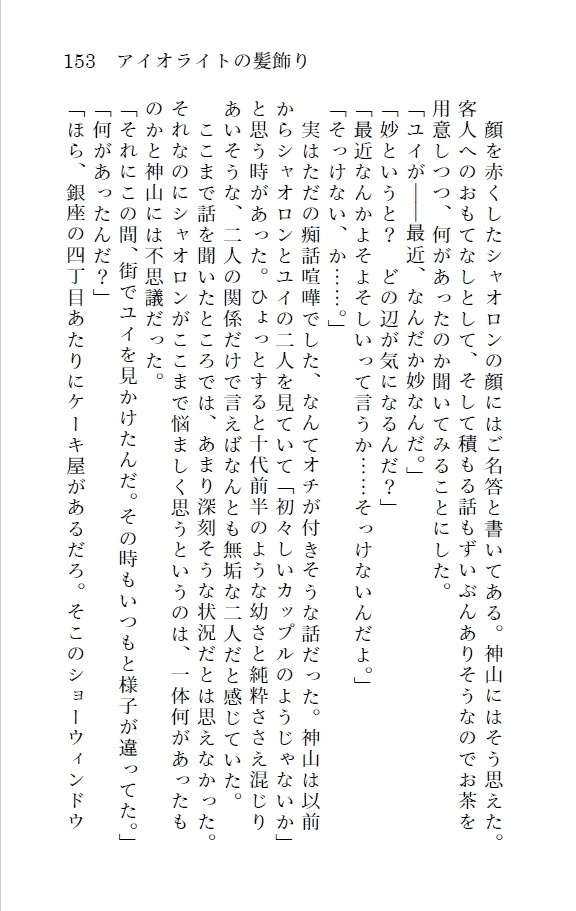 153　アイオライトの髪飾り
　顔を赤くしたシャオロンの顔にはご名答と書いてある。神山にはそう思えた。
客人へのおもてなしとして、そして積もる話もずいぶんありそうなのでお茶を
用意しつつ、何があったのか聞いてみることにした。
「ユイが――最近、なんだか妙なんだ。」
「妙というと？　どの辺が気になるんだ？」
「最近なんかよそよそしいって言うか……そっけないんだよ。」
「そっけない、か……。」
　実はただの痴話喧嘩でした、なんてオチが付きそうな話だった。神山は以前
からシャオロンとユイの二人を見ていて「初々しいカップルのようじゃないか」
と思う時があった。ひょっとすると十代前半のような幼さと純粋ささえ混じり
あいそうな、二人の関係だけで言えばなんとも無垢な二人だと感じていた。
　ここまで話を聞いたところでは、あまり深刻そうな状況だとは思えなかった。
それなのにシャオロンがここまで悩ましく思うというのは、一体何があったも
のかと神山には不思議だった。
「それにこの間、街でユイを見かけたんだ。その時もいつもと様子が違ってた。」
「何があったんだ？」
「ほら、銀座の四丁目あたりにケーキ屋があるだろ。そこのショーウィンドウ